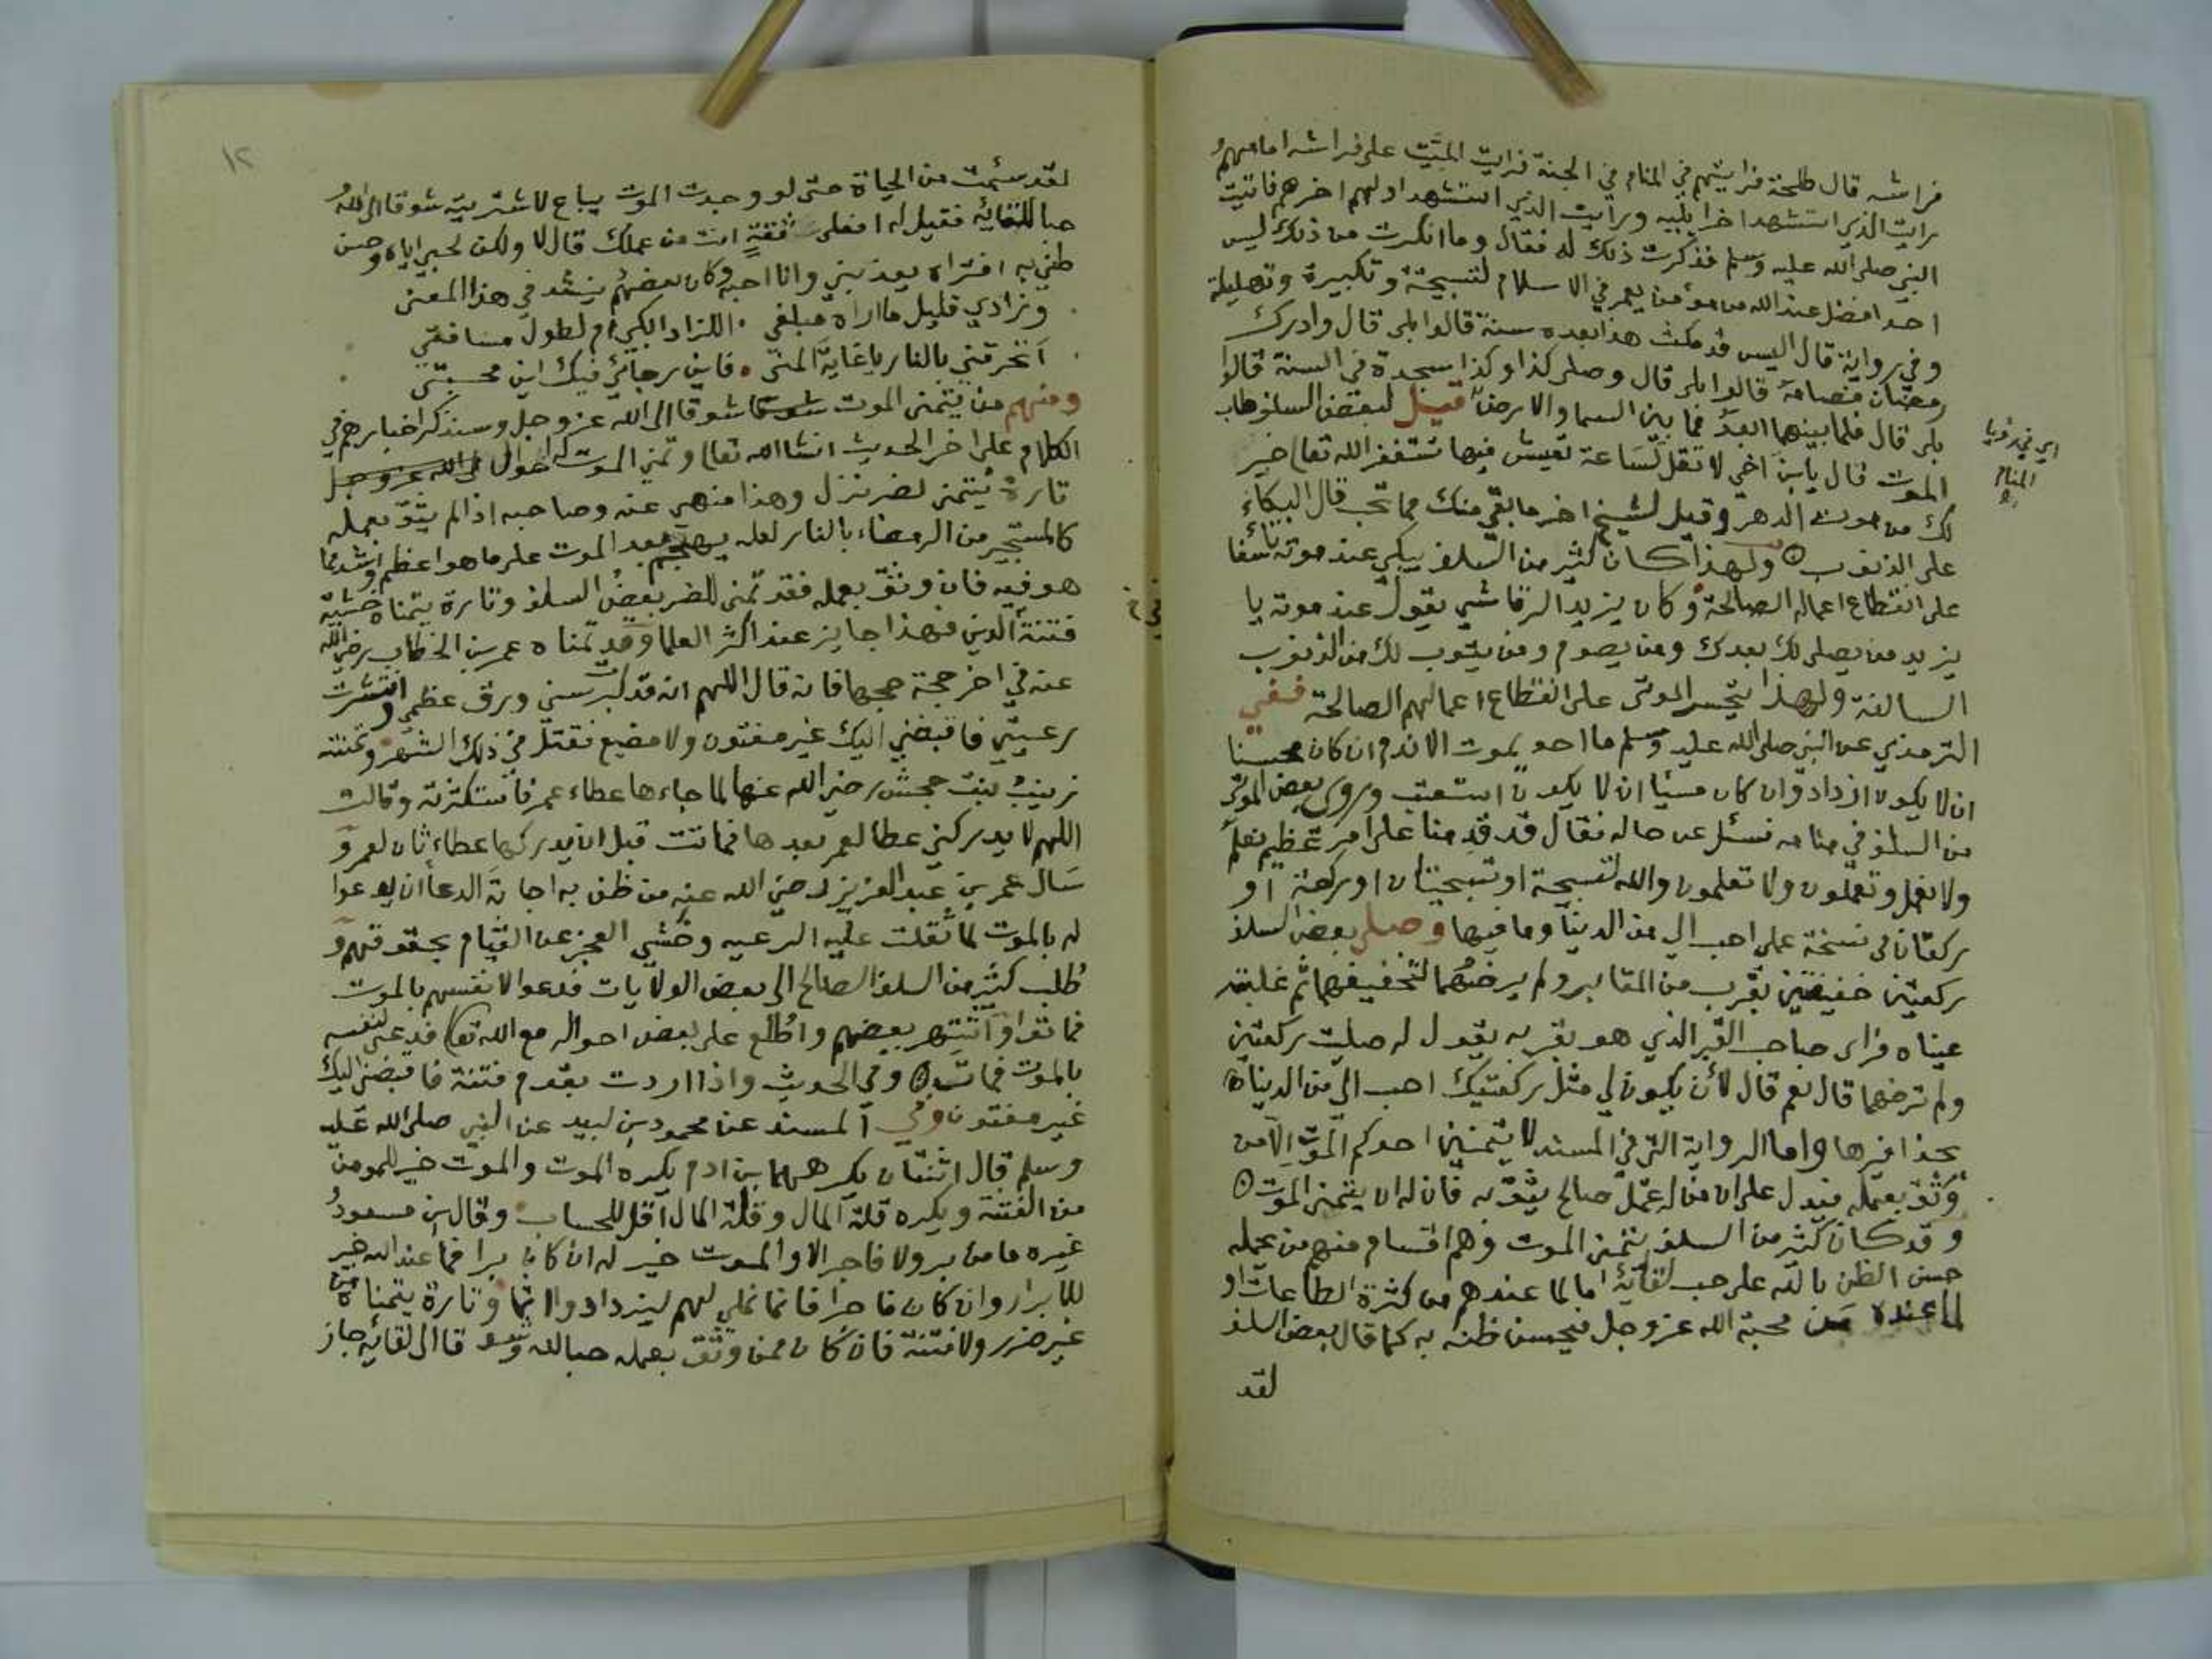 فراشه قال طلحة فرايتهم في المنام في الجنة فرايت الميت على فراشه امامهم و
رايت الذي استشهد اخرا يليه ورايت الذي استشهد اولهم اخرهم فاتيت
النبي صلى الله عليه وسلم فذكرت ذلك له فقال وما انكرت من ذلك ليس
احد افضل عند الله من مؤمن يعمر في الاسلام لتسبيحة وتكبيرة وتهليلة
وفي رواية قال اليس قد مكث هذا بعده سنة قالوا بلى قال وادرك
رمضان فصامه قالوا بلى قال وصلى كذا وكذا سجدة في السنة قالوا
بلى قال فلما بينهما ابعد مما بين السما والارض قيل لبعض السلف طاب
الموت قال يابن اخي لا تفعل لساعة تعيش فيها تستغفر الله تعالى خير
لك من موت الدهر وقيل لشيخ اخر ما بقي منك مما تحب قال البكاء
على الذنوب ولهذا كان كثير من السلف يبكي عند موته تاسفا
على انقطاع اعماله الصالحة وكان يزيد الرقاشي يقول عند موته يا
يزيد من يصلي لك بعدك ومن يصوم ومن يتوب لك من الذنوب
السالفة ولهذا يتحسر الموتى على انقطاع اعمالهم الصالحة ففي
الترمذي عن النبي صلى الله عليه وسلم ما احد يموت الا ندم ان كان محسنا
ان لا يكون ازداد وان كان مسيئا ان لا يكون استعتب وروي بعض الموتى
من السلف في منامه فسئل عن حاله فقال قد قدمنا على امر عظيم نعلم
ولا نعمل وتعملون ولا تعلمون والله لتسبيحة او تسبيحتان او ركعة او
ركعتان في نسخة عملي احب الي من الدنيا وما فيها وصلى بعض السلف
ركعتين خفيفتين بقرب من المقابر ولم يرضهما لتخفيفهما ثم غلبته
عيناه فراى صاحب القبر الذي هو بقربه يقول له صليت ركعتين
ولم ترضهما قال نعم قال لأن يكون لي مثل ركعتيك احب الي من الدنيا
بحذافيرها واما الرواية التي في المسند لا يتمنين احدكم الموت الا من
وثق بعمله فيدل على ان من له عمل صالح يثق به فان له ان يتمنى الموت
وقد كان كثير من السلف يتمنى الموت وهم اقسام منهم من يحمله
حسن الظن بالله على حب لقائه اما لما عندهم من كثرة الطاعات او
لما عنده من محبة الله عز وجل فيحسن ظنه به كما قال بعض السلف
لقد
اي في رؤيا
المنام
١٢
لقد سئمت من الحياة حتى لو وجدت الموت يباع لاشتريته شوقا الى الله و
حبا للقائه فقيل له افعلى ثقة انت من عملك قال لا ولكن لحبي اياه وحسن
ظني به افتراه يعذبني وانا احبه وكان بعضهم ينشد في هذا المعنى
وزادي قليل ما اراه مبلغي اللزاد ابكي ام لطول مسافتي
اتحرقني بالنار يا غاية المنى فاين رجائي فيك اين محبتي
ومنهم من يتمنى الموت شوقا الى الله عز وجل وسنذكر اخبارهم في
الكلام على اخر الحديث انشا الله تعالى وتمني الموت له احوال
تارة يتمنى لضر نزل وهذا منهي عنه وصاحبه اذا لم يثق بعمله
كالمستجير من الرمضاء بالنار لعله يهجم بعد الموت على ما هو اعظم واشد مما
هو فيه فان وثق بعمله فقد تمنى للضر بعض السلف وتارة يتمناه خشية
فتنة الدين فهذا جايز عند اكثر العلما وقد تمناه عمر بن الخطاب رضي الله
عنه في اخر حجة حجها فانه قال اللهم انه قد كبر سني ورق عظمي وانتشرت
رعيتي فاقبضني اليك غير مفتون ولا مضيع فقتل في ذلك الشهر وتمنته
زينب بنت جحش رضي الله عنها لما جاءها عطاء عمر فاستكثرته وقالت
اللهم لا يدركني عطا لعمر بعدها فماتت قبل ان يدركها عطاء ثان لعمر و
سال عمر بن عبد العزيز رضي الله عنه من ظن به اجابة الدعا ان يدعوا
له بالموت لما ثقلت عليه الرعيه وخشي العجز عن القيام بحقوقهم و
طلب كثير من السلف الصالح الى بعض الولايات فدعوا لانفسهم بالموت
فماتوا واشتهر بعضهم واطلع على بعض احواله مع الله تعالى فدعى لنفسه
بالموت فمات وفي الحديث واذا اردت بقوم فتنة فاقبضني اليك
غير مفتون وفي المسند عن محمود بن لبيد عن النبي صلى الله عليه
وسلم قال اثنتان يكرههما بن ادم يكره الموت والموت خير للمومن
من الفتنة ويكره قلة المال وقلة المال اقل للحساب وقال بن مسعود و
غيره ما من بر ولا فاجر الا والموت خير له ان كان برا فما عند الله خير
للابرار وان كان فاجرا فانما نملي لهم ليزدادوا اثما وتارة يتمناه من
غير ضرر ولا فتنة فان كان ممن وثق بعمله حبا لله وشوقا الى لقائه جاز